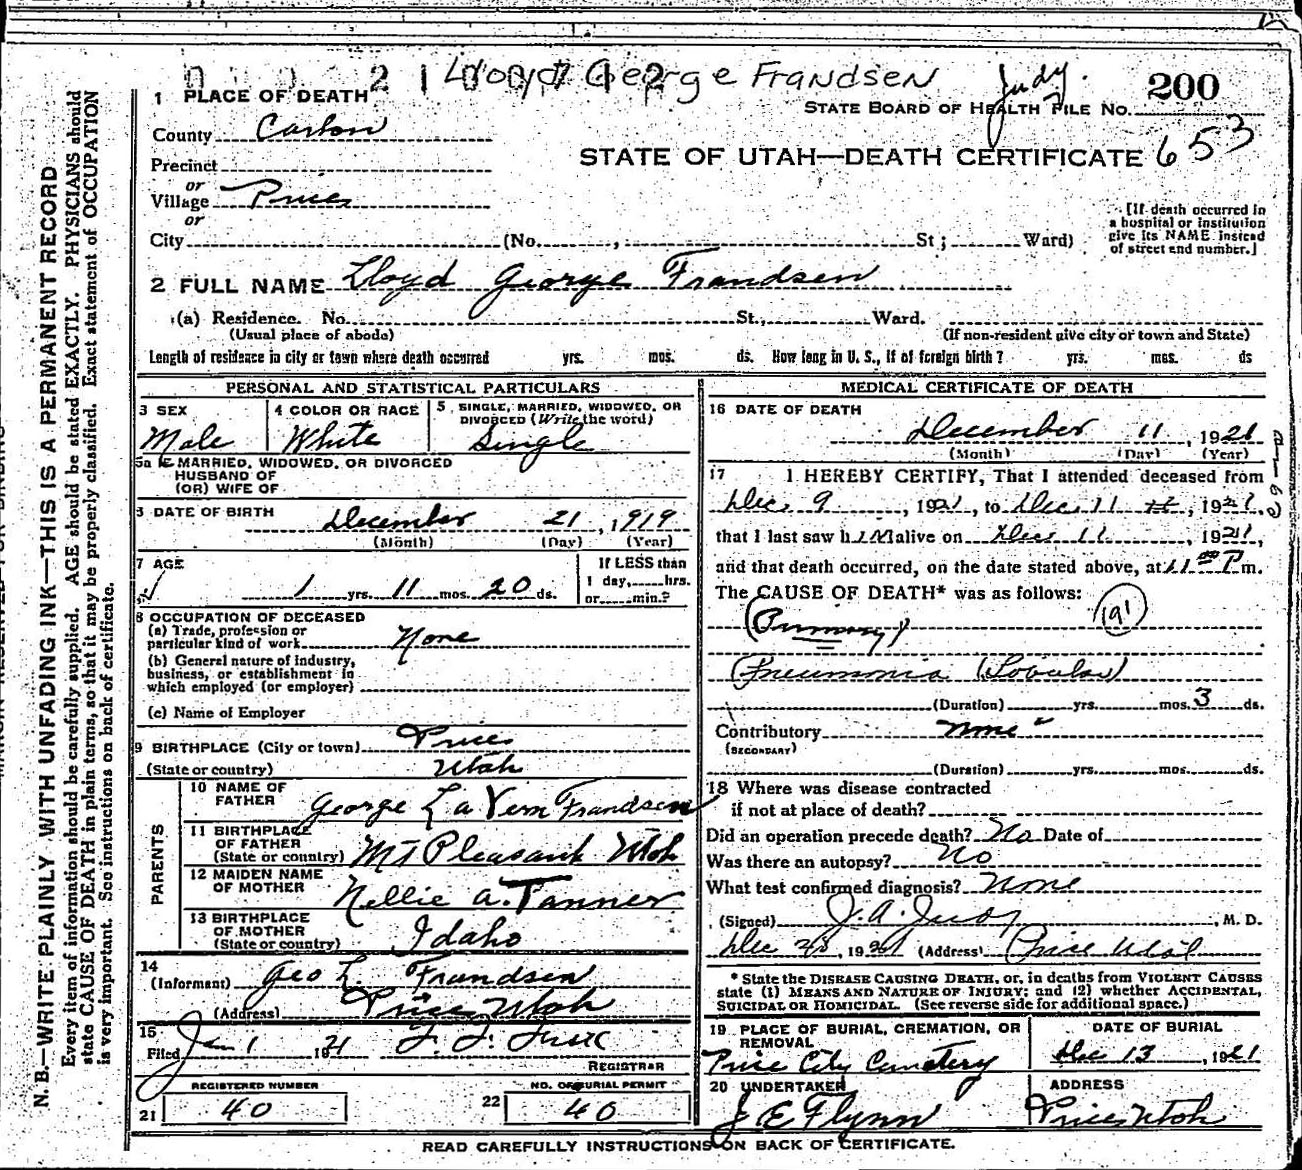 Lloyd George Frandsen
Judy.
200
STATE BOARD OF HEALTH FILE No.
653
STATE OF UTAH—DEATH CERTIFICATE
1 PLACE OF DEATH
County Carbon
Precinct
or
Village Price
or
City (No. , St; Ward)
[If death occurred in
a hospital or institution
give its NAME instead
of street and number.]
2 FULL NAME Lloyd George Frandsen
(a) Residence. No. St., Ward.
(Usual place of abode) (If non-resident give city or town and State)
Length of residence in city or town where death occurred yrs. mos. ds. How long in U. S., if of foreign birth? yrs. mos. ds
PERSONAL AND STATISTICAL PARTICULARS
3 SEX
Male
4 COLOR OR RACE
White
5 SINGLE, MARRIED, WIDOWED, OR
DIVORCED (Write the word)
Single
5a IF MARRIED, WIDOWED, OR DIVORCED
HUSBAND OF
(OR) WIFE OF
DATE OF BIRTH December 21, 1919
(Month) (Day) (Year)
7 AGE
1 yrs. 11 mos. 20 ds.
If LESS than
1 day, hrs.
or min.?
8 OCCUPATION OF DECEASED
(a) Trade, profession or
particular kind of work None
(b) General nature of industry,
business, or establishment in
which employed (or employer)
(c) Name of Employer
9 BIRTHPLACE (City or town) Price
(State or country) Utah
PARENTS
10 NAME OF
FATHER George La Vern Frandsen
11 BIRTHPLACE
OF FATHER
(State or country) Mt Pleasant Utah
12 MAIDEN NAME
OF MOTHER Nellie A. Tanner
13 BIRTHPLACE
OF MOTHER
(State or country) Idaho
14
(Informant) Geo L Frandsen
(Address) Price Utah
15
Filed Jan 1 1921
REGISTRAR
REGISTERED NUMBER
21 40
NO. OF BURIAL PERMIT
22 40
MEDICAL CERTIFICATE OF DEATH
16 DATE OF DEATH
December 11, 1921
(Month) (Day) (Year)
17 I HEREBY CERTIFY, That I attended deceased from
Dec 9, 1921, to Dec 11, 1921,
that I last saw him alive on Dec 11, 1921,
and that death occurred, on the date stated above, at 11 00 P m.
The CAUSE OF DEATH* was as follows:
(Primary) 191
Pneumonia (Lobular)
(Duration) yrs. mos. 3 ds.
Contributory none
(SECONDARY)
(Duration) yrs. mos. ds.
18 Where was disease contracted
if not at place of death?
Did an operation precede death? No Date of
Was there an autopsy? No
What test confirmed diagnosis? None
(Signed) J. A. Judy, M. D.
Dec, 1921 (Address) Price Utah
* State the DISEASE CAUSING DEATH, or, in deaths from VIOLENT CAUSES
state (1) MEANS AND NATURE OF INJURY; and (2) whether ACCIDENTAL,
SUICIDAL OR HOMICIDAL. (See reverse side for additional space.)
19 PLACE OF BURIAL, CREMATION, OR
REMOVAL
Price City Cemetery
DATE OF BURIAL
Dec 13, 1921
20 UNDERTAKER
J E Flynn
ADDRESS
Price Utah
READ CAREFULLY INSTRUCTIONS ON BACK OF CERTIFICATE.
N. B.—WRITE PLAINLY WITH UNFADING INK—THIS IS A PERMANENT RECORD
Every item of information should be carefully supplied. AGE should be stated EXACTLY. PHYSICIANS should
state CAUSE OF DEATH in plain terms, so that it may be properly classified. Exact statement of OCCUPATION
is very important. See instructions on back of certificate.